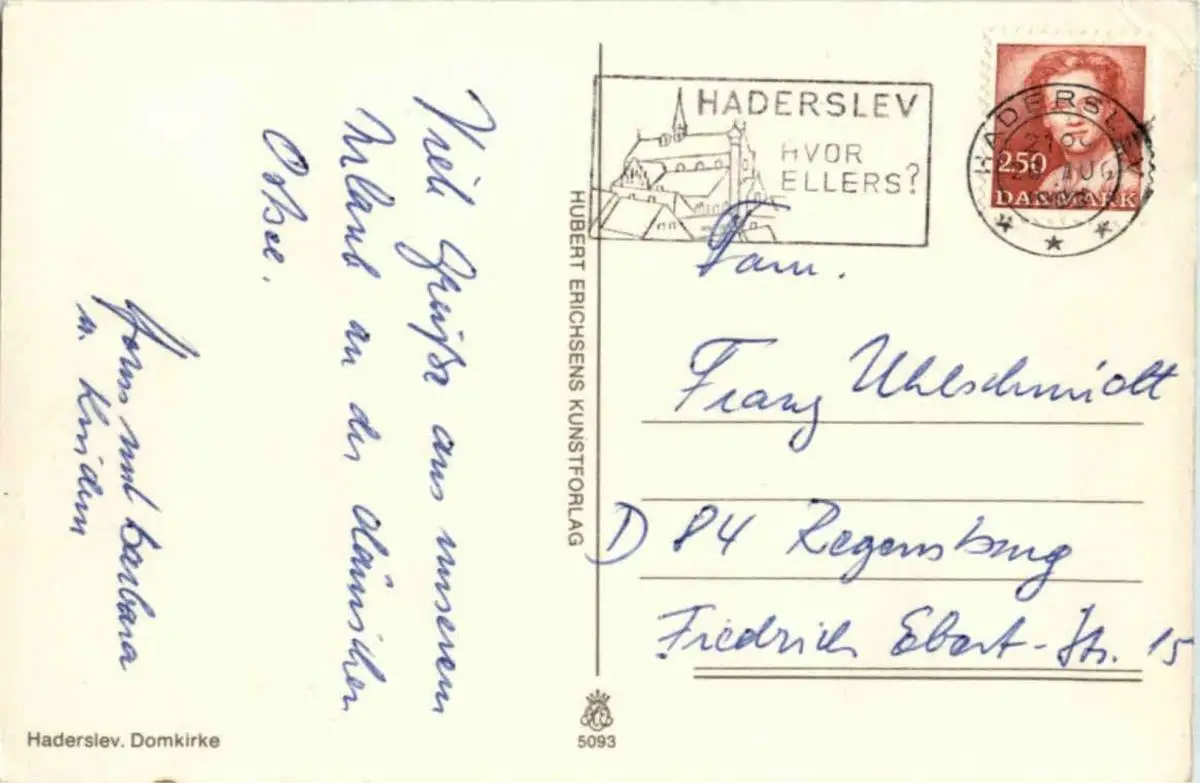 Viele Grüße aus unserem
Urlaub an der dänischen
Ostsee.
und Barbara
u. Kinder
Haderslev. Domkirke
HUBERT ERICHSENS KUNSTFORLAG
5093
HADERSLEV
HVOR
ELLERS?
HADERSLEV
AUG
250
DANMARK
Fam.
Franz Uhlschmidt
D 84 Regensburg
Friedrich Ebert-Str. 15